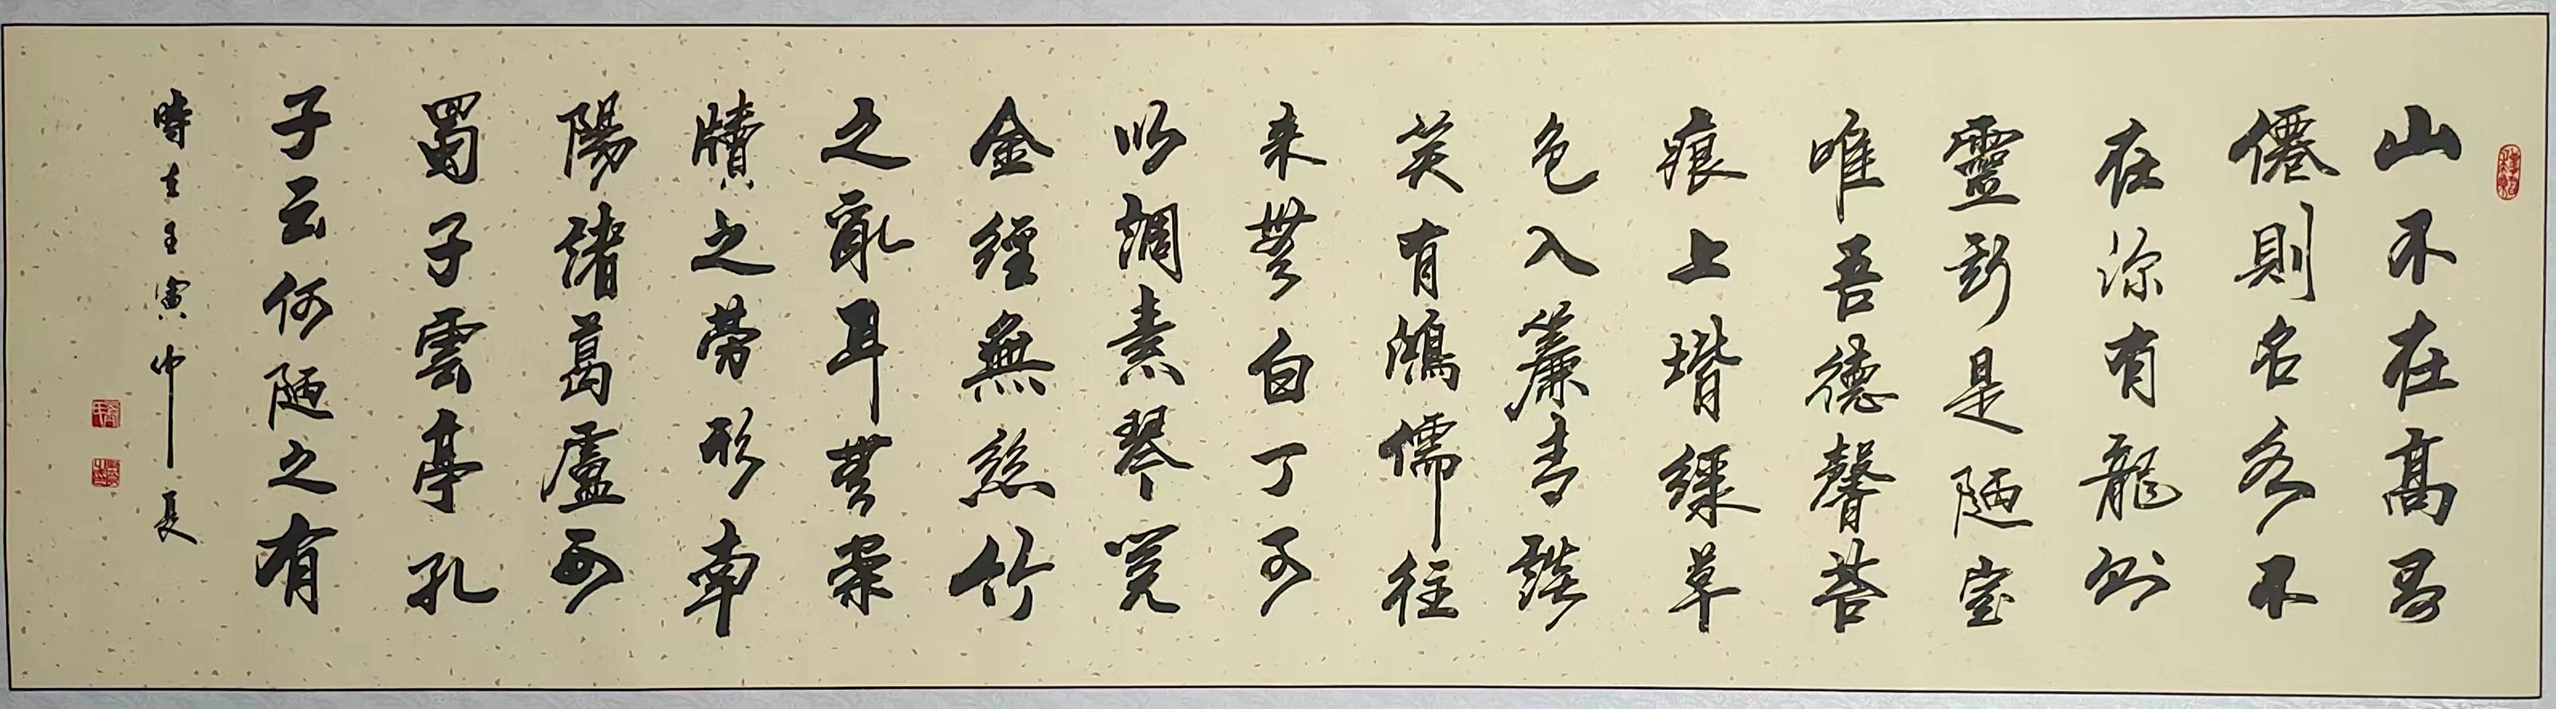 山不在高有
僊則名水不
在深有龍則
靈斯是陋室
唯吾德馨苔
痕上堦綠草
色入簾青談
笑有鴻儒往
来無白丁可
以調素琴閱
金經無絲竹
之亂耳無案
牘之勞形南
陽諸葛廬西
蜀子雲亭孔
子云何陋之有
時在壬寅仲夏